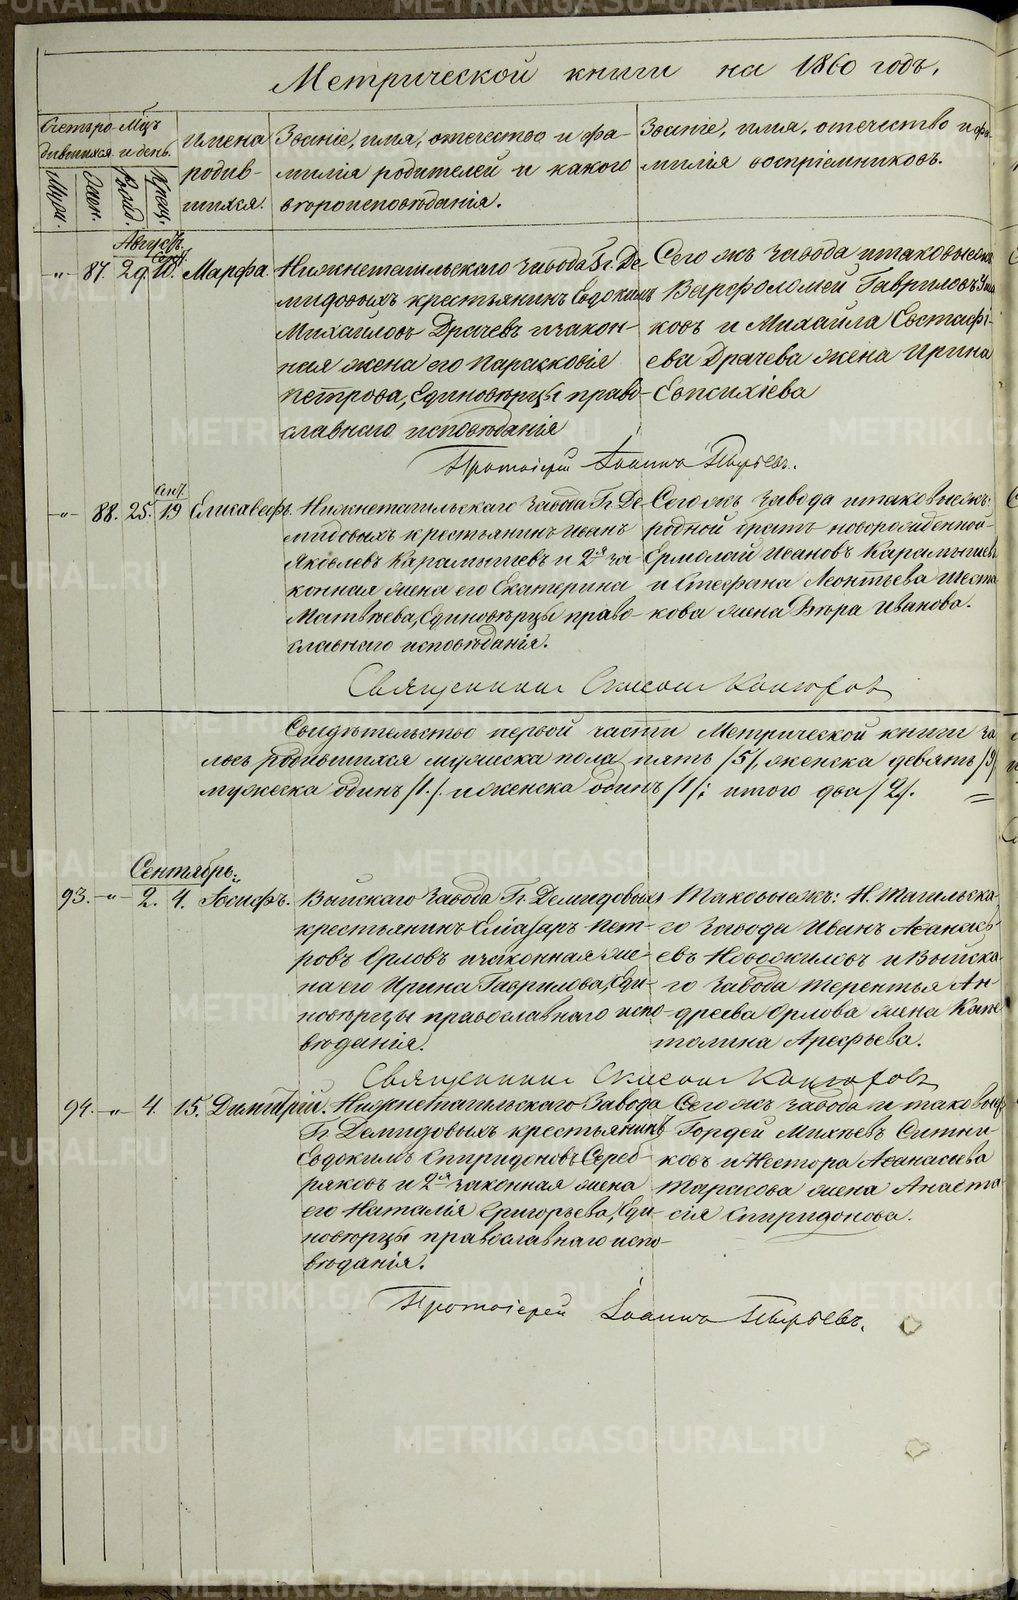 Метрической книги на 1860 годъ.
Счетъ ро- Мцъ
дившихся. и день.
Муж.
Женс.
Рожд.
Крещ.
Имена
родив-
шихся.
Званіе, имя, отечество и фа-
милія родителей и какого
вѣроисповѣданія.
Званіе, имя, отечество и фа-
милія воспріемниковъ.
Августъ.
Сент.
-"- 87. 29. 10. Марфа
Нижнетагильскаго завода Гг. Де-
мидовыхъ крестьянинъ Евдокимъ
Михаиловъ Драчевъ и закон-
ная жена его Парасковія
Петрова, Единовѣрцы право-
славнаго исповѣданія
Сего жъ завода и таковые жъ
Варфоломей Гавриловъ
ковъ и Михаила Евстафі-
ева Драчева жена Ирина
Евпсихіева
Протоіерей Іоаннъ
Сент.
-"- 88. 25. 19 Елисавефъ.
Нижнетагильскаго завода Гг. Де-
мидовыхъ крестьянинъ Иванъ
Яковлевъ Карамышевъ и 2я за-
конная жена его Екатерина
Матвѣева, Единовѣрцы право-
славнаго исповѣданія.
Сего жъ завода и таковые жъ:
родной братъ новорожденной
Ермолай Ивановъ Карамышевъ
и Стефана Леонтьева Шеста-
кова жена Вѣра Иванова.
Священникъ Симеонъ
Свидѣтельство первой части Метрической книги за
лось родившихся мужеска пола пять /5/, женска девять /9/
мужеска одинъ /1/. и женска одинъ /1/; итого два /2/.
Сентябрь.
93. -"- 2. 4. Іосифъ.
Выйскаго завода Гг. Демидовыхъ
крестьянинъ Еліазаръ Пет-
ровъ Орловъ и законная же-
на его Ирина Гаврилова, Еди-
новѣрцы православнаго испо-
вѣданія.
Таковые жъ: Н. Тагильска-
го завода Иванъ Афанась-
евъ Новожиловъ и Выйска-
го завода Терентья Ан-
дреева Орлова жена Капи-
толина Арефьева.
Священникъ Симеонъ
94. -"- 4. 15. Димитрій.
Нижнетагильскаго завода
Гг. Демидовыхъ крестьянинъ
Евдокимъ Спиридоновъ Сереб-
ряковъ и 2я законная жена
его Наталія Григорьева, Еди-
новѣрцы православнаго испо-
вѣданія.
Сего жъ завода и таковые
Гордей Михѣевъ Ситни-
ковъ и Нестора Афанасьева
Тарасова жена Анаста-
сія Спиридонова.
Протоіерей Іоаннъ